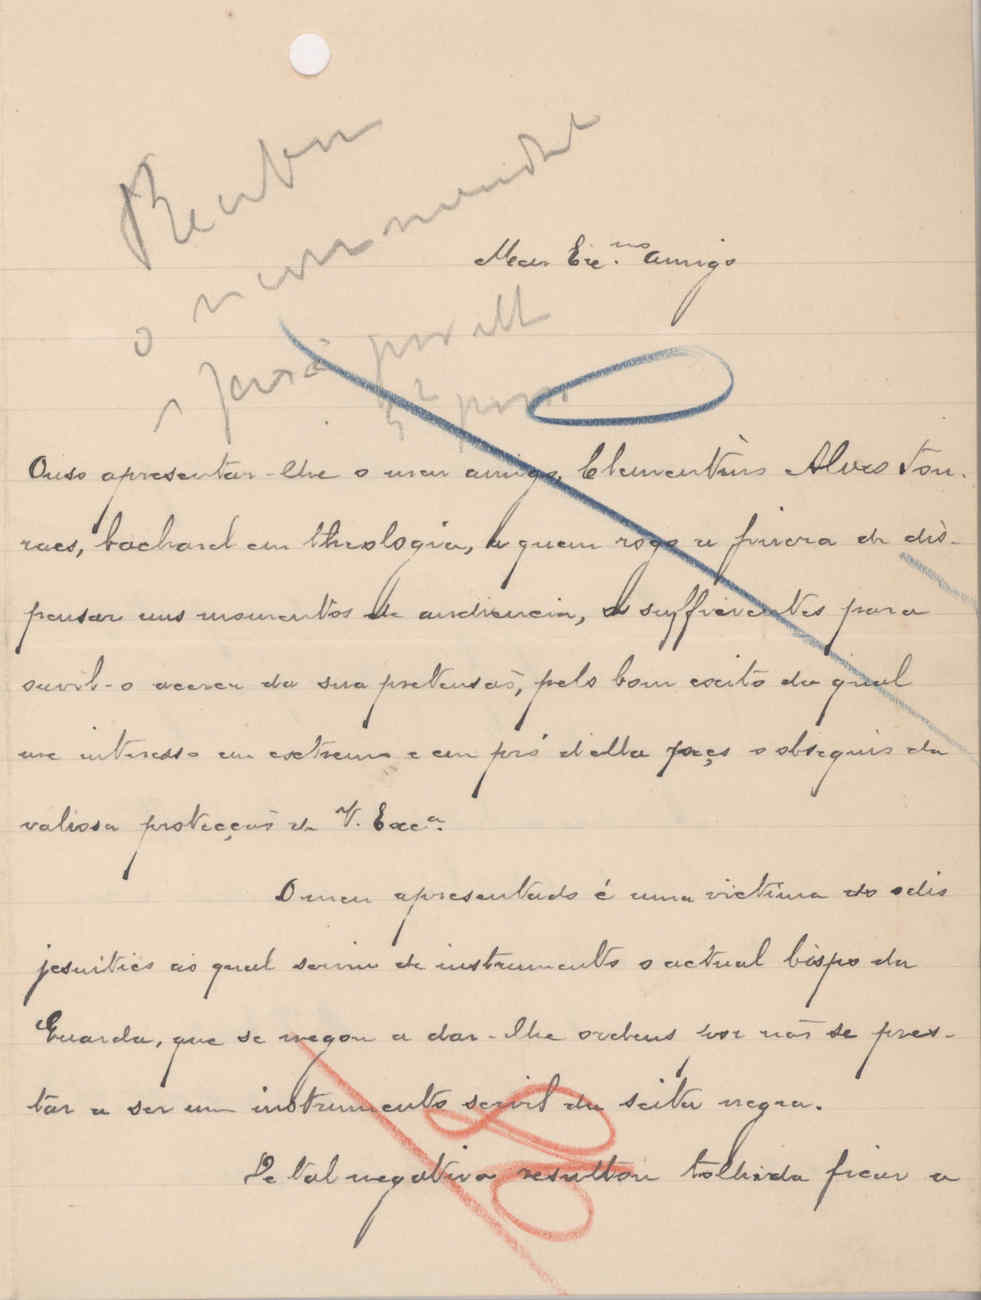 Recebi
o recommendado
Meu Exc.mo amigo
Ouso apresentar-lhe o meu amigo, Clementino Alves Tou-
raes, bacharel em theologia, a quem rogo a fineza de dis-
pensar uns momentos de audiencia, os sufficientes para
ouvil-o acerca da sua pretensão, pelo bom exito da qual
me interesso em extremo e em pró d'ella peço o obsequio da
valiosa protecção de V. Exc.a
O meu apresentado é uma victima do odio
jesuitico ao qual serviu de instrumento o actual bispo da
Guarda, que se negou a dar-lhe ordens por não se pres-
tar a ser um instrumento servil da seita negra.
De tal negativa resultou tolhida ficar a